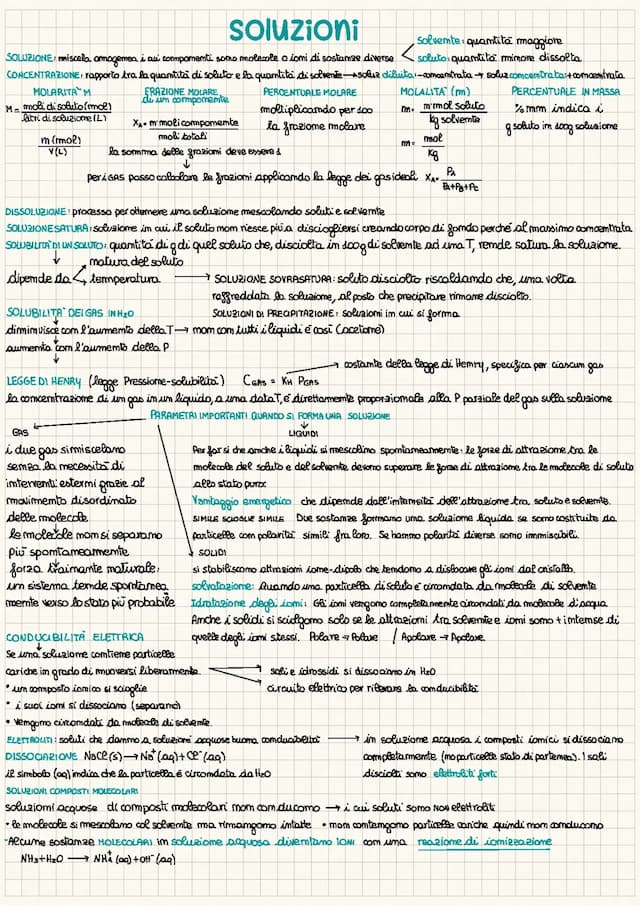 SOLUZIONI
SOLUZIONE: miscela omogenea i cui componenti sono molecole o ioni di sostanze diverse
solvente: quantità maggiore
soluto: quantità minore dissolta
CONCENTRAZIONE: rapporto tra la quantità di soluto e la quantità di solvente → soluz diluita: -concentrata → soluz concentrata: +concentrata
MOLARITÀ M
M = moli di soluto (mol) / litri di soluzione (L)
n (mol) / V (L)
FRAZIONE MOLARE di un componente
XA = n° moli componente / moli totali
la somma delle frazioni deve essere 1
PERCENTUALE MOLARE
moltiplicando per 100
la frazione molare
MOLALITÀ (m)
m = n° mol soluto / kg solvente
m = mol / Kg
PERCENTUALE IN MASSA
% m/m indica i
g soluto in 100g soluzione
↓
per i GAS posso calcolare le frazioni applicando la legge dei gas ideali XA = PA / PA+PB+PC
DISSOLUZIONE: processo per ottenere una soluzione mescolando soluti e solvente
SOLUZIONE SATURA: soluzione in cui il soluto non riesce più a disciogliersi creando corpo di fondo perché al massimo concentrata
SOLUBILITÀ DI UN SOLUTO: quantità di g di quel soluto che, disciolta in 100g di solvente ad una T, rende satura la soluzione.
dipende da
natura del soluto
temperatura → SOLUZIONE SOVRASATURA: soluto disciolto riscaldando che, una volta
raffreddata la soluzione, al posto che precipitare rimane disciolto.
SOLUBILITÀ DEI GAS IN H2O
SOLUZIONI DI PRECIPITAZIONE: soluzioni in cui si forma
diminuisce con l'aumento della T → non con tutti i liquidi è così (acetone)
aumenta con l'aumento della P
costante della legge di Henry, specifica per ciascun gas
LEGGE DI HENRY (legge Pressione-solubilità) CGAS = KH PGAS
la concentrazione di un gas in un liquido, a una data T, è direttamente proporzionale alla P parziale del gas sulla soluzione
PARAMETRI IMPORTANTI QUANDO SI FORMA UNA SOLUZIONE
GAS
i due gas si mescolano
senza la necessità di
interventi esterni grazie al
movimento disordinato
delle molecole
le molecole non si separano
più spontaneamente
forza trainante naturale:
un sistema tende spontanea
mente verso lo stato più probabile
LIQUIDI
Per far sì che anche i liquidi si mescolino spontaneamente: le forze di attrazione tra le
molecole del soluto e del solvente devono superare le forze di attrazione tra le molecole di soluto
allo stato puro:
Vantaggio energetico che dipende dall'intensità dell'attrazione tra soluto e solvente.
SIMILE SCIOGLIE SIMILE Due sostanze formano una soluzione liquida se sono costituite da
particelle con polarità simili fra loro. Se hanno polarità diverse sono immiscibili.
SOLIDI
si stabiliscono attrazioni ione-dipolo che tendono a dislocare gli ioni dal cristallo.
solvatazione: Quando una particella di soluto è circondata da molecole di solvente
Idratazione degli ioni: Gli ioni vengono completamente circondati da molecole di acqua
Anche i solidi si sciolgono solo se le attrazioni tra solvente e ioni sono + intense di
quelle degli ioni stessi. Polare → Polare / Apolare → Apolare
CONDUCIBILITÀ ELETTRICA
Se una soluzione contiene particelle
cariche in grado di muoversi liberamente.
sali e idrossidi si dissociano in H2O
circuito elettrico per rilevare la conducibilità
• un composto ionico si scioglie
• i suoi ioni si dissociano (separano)
• vengono circondati da molecole di solvente
ELETTROLITI: soluti che danno a soluzioni acquose buona conducibilità → in soluzione acquosa i composti ionici si dissociano
DISSOCIAZIONE NaCl(s) → Na+(aq) + Cl-(aq)
completamente (no particelle stato di partenza). I sali
il simbolo (aq) indica che la particella è circondata da H2O
disciolti sono elettroliti forti
SOLUZIONI COMPOSTI MOLECOLARI
soluzioni acquose di composti molecolari non conducono → i cui soluti sono NON elettroliti
• le molecole si mescolano col solvente ma rimangono intatte • non contengono particelle cariche quindi non conducono
Alcune sostanze MOLECOLARI in soluzione acquosa diventano IONI con una reazione di ionizzazione
NH3 + H2O → NH4+ (aq) + OH- (aq)